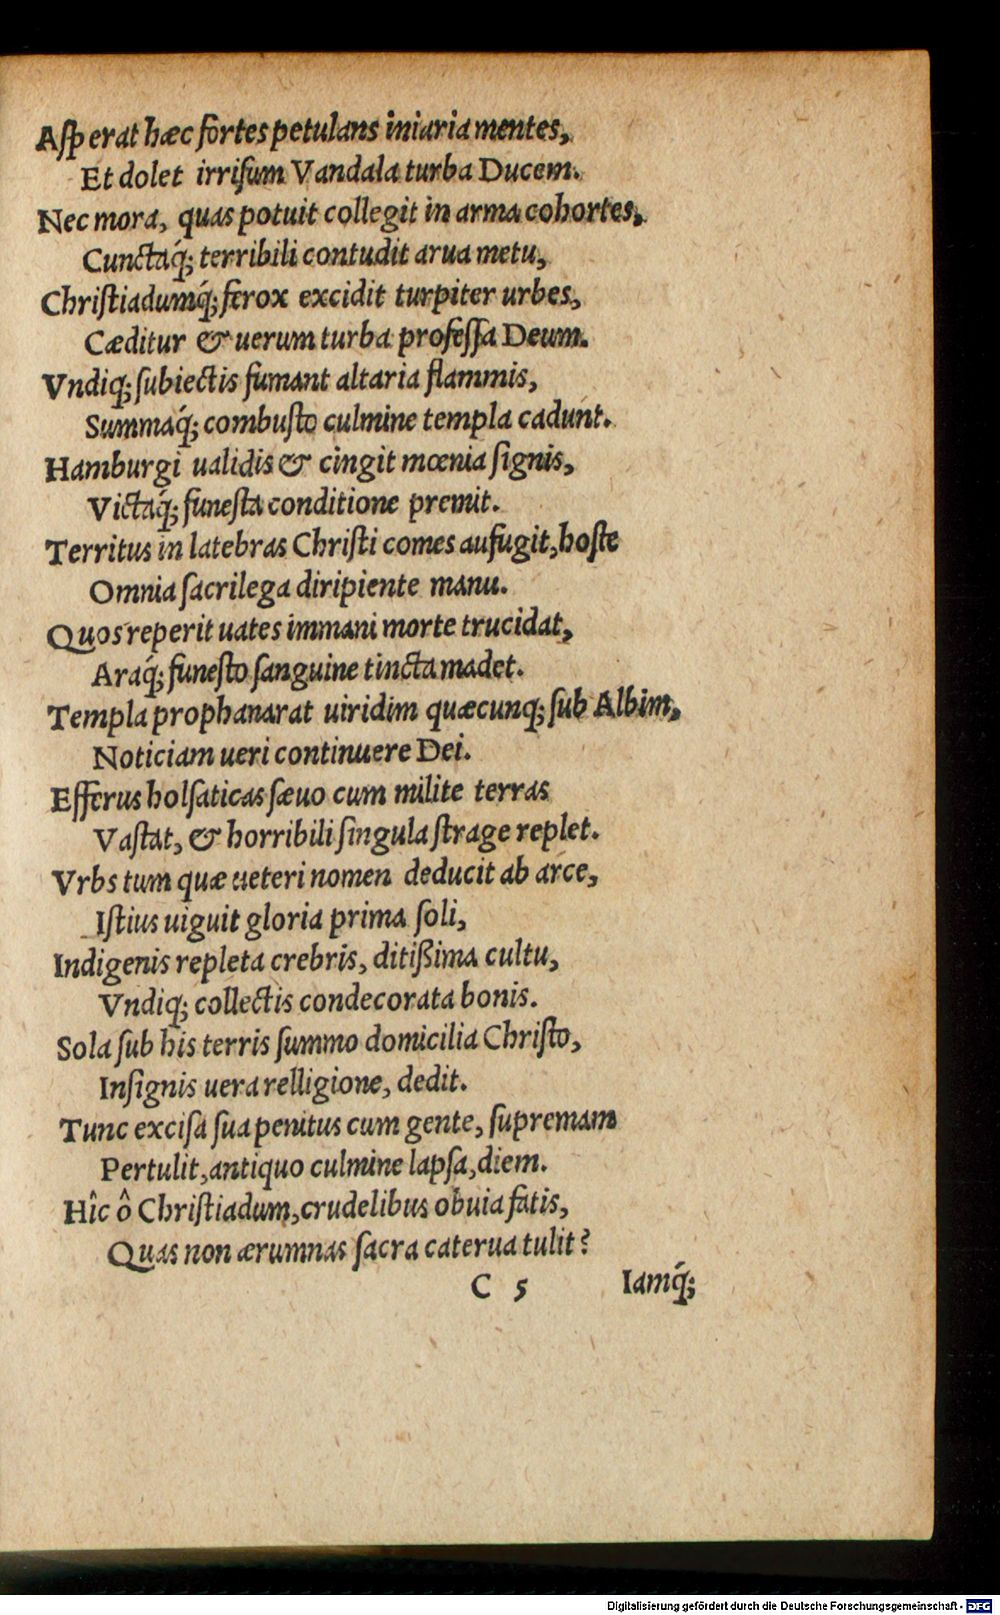 Aſperat hæc fortes petulans iniuria mentes,
Et dolet irriſum Vandala turba Ducem.
Nec mora, quas potuit collegit in arma cohortes,
Cunctaq́; terribili contudit arua metu,
Chriſtiadumq́; ferox excidit turpiter urbes,
Cæditur & uerum turba profeſſa Deum.
Vndiq; ſubiectis fumant altaria flammis,
Summaq́; combuſto culmine templa cadunt.
Hamburgi ualidis & cingit mœnia ſignis,
Victaq́; funeſta conditione premit.
Territus in latebras Chriſti comes aufugit, hoſte
Omnia ſacrilega diripiente manu.
Quos reperit uates immani morte trucidat,
Araq́; funeſto ſanguine tincta madet.
Templa prophanarat uiridim quæcunq; ſub Albim,
Noticiam ueri continuere Dei.
Efferus holſaticas ſæuo cum milite terras
Vaſtat, & horribili ſingula ſtrage replet.
Vrbs tum quæ ueteri nomen deducit ab arce,
Iſtius uiguit gloria prima ſoli,
Indigenis repleta crebris, ditißima cultu,
Vndiq; collectis condecorata bonis.
Sola ſub his terris ſummo domicilia Chriſto,
Inſignis uera relligione, dedit.
Tunc exciſa ſua penitus cum gente, ſupremam
Pertulit, antiquo culmine lapſa, diem.
Hîc ô Chriſtiadum, crudelibus obuia fatis,
Quas non ærumnas ſacra caterua tulit?
C 5 Iamq́;
Digitalisierung gefördert durch die Deutsche Forschungsgemeinschaft - DFG